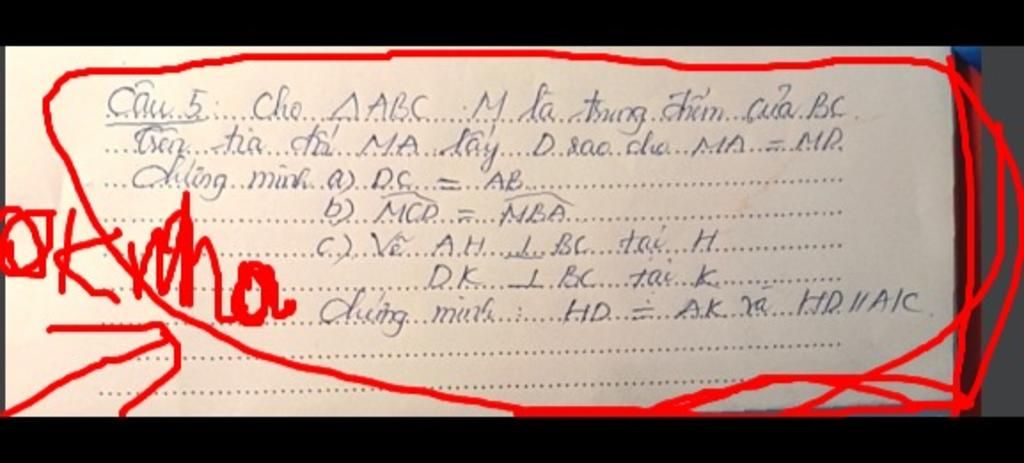 Câu 5: Cho △ABC. M là trung điểm của BC
Trên tia đối MA lấy D sao cho MA = MD.
Chứng minh a) DC = AB
b) MCD = MBA
c) Vẽ AH ⊥ BC tại H
DK ⊥ BC tại K
Chứng minh: HD = AK và HD // AK
OK nha